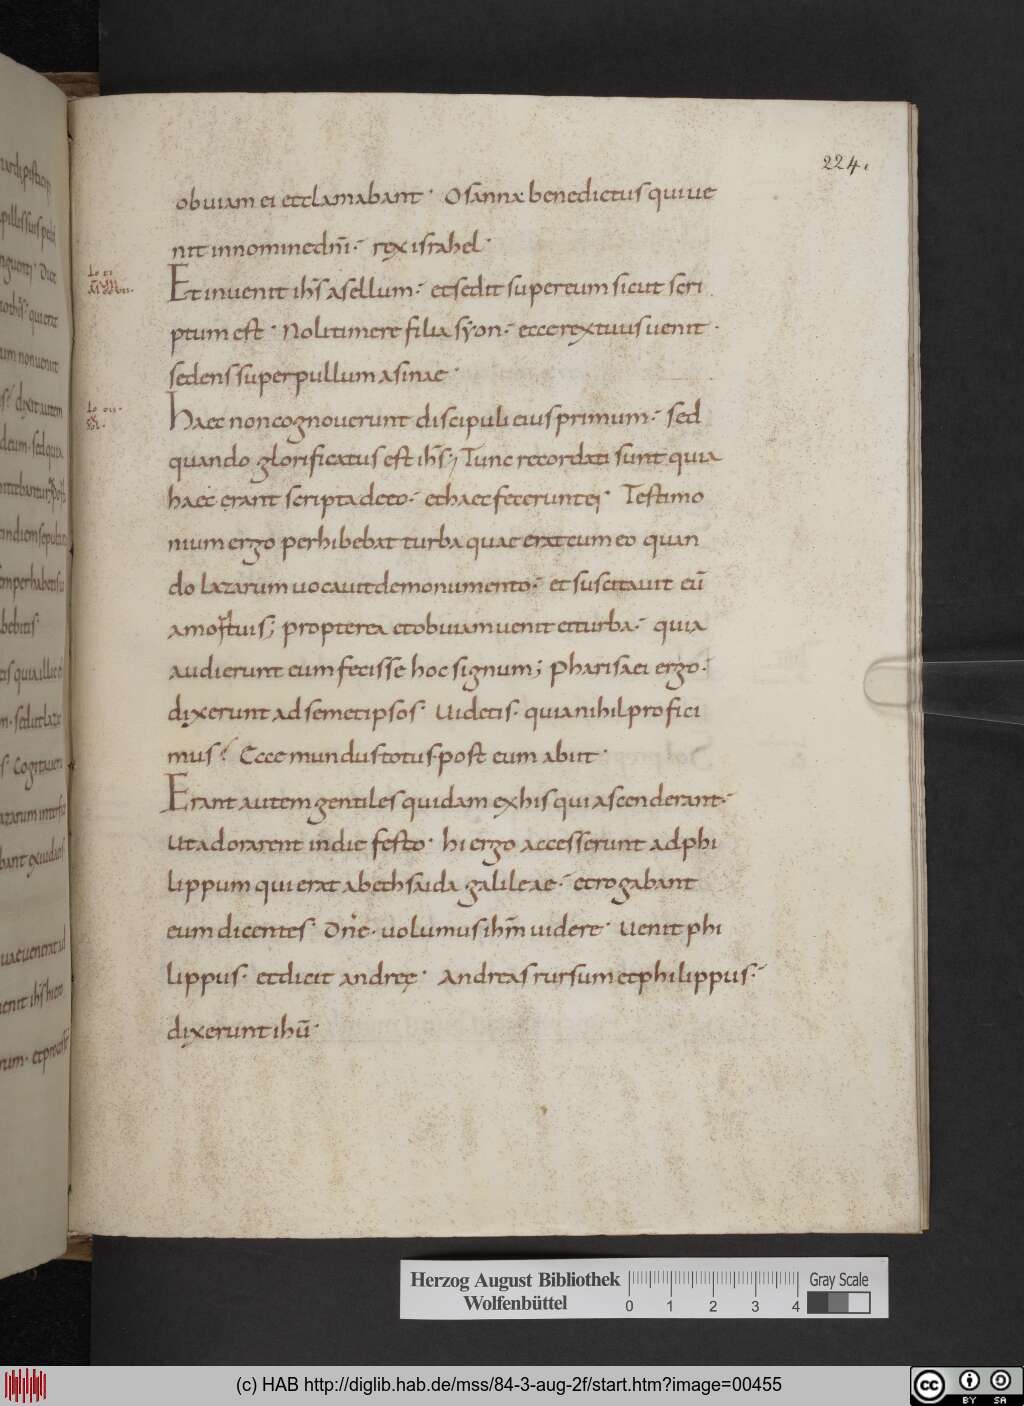 224.
obuiam ei et clamabant· Osanna benedictus qui ue
nit in nomine dn̄i· rex israhel·
Et inuenit ih̄s asellum· et sedit super eum sicut scri
ptum est· Noli timere filia syon· ecce rex tuus uenit·
sedens super pullum asinae·
Haec non cognouerunt discipuli eius primum· sed
quando glorificatus est ih̄s; Tunc recordati sunt quia
haec erant scripta de eo· et haec fecerunt ei· Testimo
nium ergo perhibebat turba quae erat cum eo quan
do lazarum uocauit de monumento· et suscitauit eū
a mortuis; propterea et obuiam uenit ei turba· quia
audierunt eum fecisse hoc signum; Pharisaei ergo·
dixerunt ad semetipsos· Uidetis· quia nihil profici
mus? Ecce mundus totus post eum abiit·
Erant autem gentiles quidam ex his qui ascenderant·
Ut adorarent in die festo· hi ergo accesserunt ad phi
lippum qui erat a bethsaida galileae· et rogabant
eum dicentes· Dn̄e· uolumus ih̄m uidere· Uenit phi
lippus· et dicit andreę· Andreas rursum et philippus·
dixerunt ihū·
Herzog August Bibliothek
Wolfenbüttel
0 1 2 3 4
Gray Scale
(c) HAB http://diglib.hab.de/mss/84-3-aug-2f/start.htm?image=00455
cc BY SA